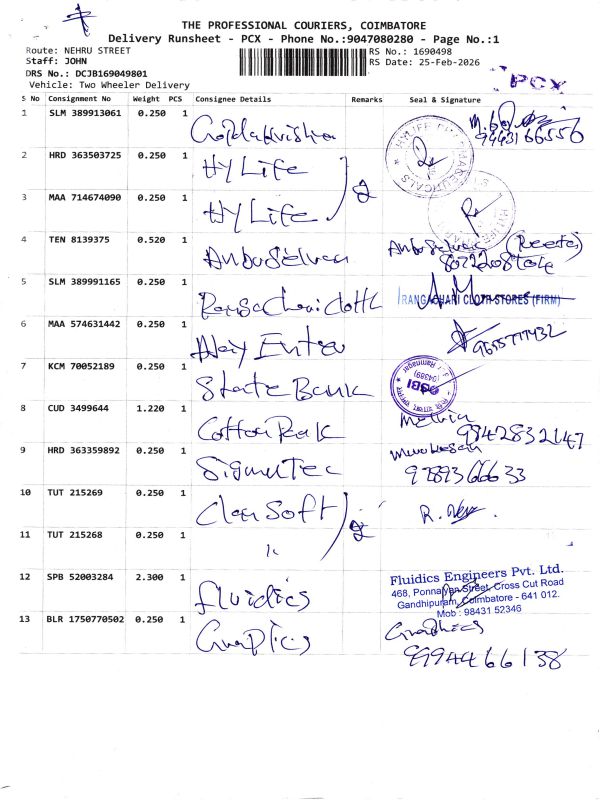 THE PROFESSIONAL COURIERS, COIMBATORE
Delivery Runsheet - PCX - Phone No.:9047080280 - Page No.:1
Route: NEHRU STREET
RS No.: 1690498
Staff: JOHN
RS Date: 25-Feb-2026
DRS No.: DCJB169049801
Vehicle: Two Wheeler Delivery
PCX
S No Consignment No Weight PCS Consignee Details Remarks Seal & Signature
1 SLM 389913061 0.250 1 Gopalakrishna
9443166556
2 HRD 363503725 0.250 1 HY Life
3 MAA 714674090 0.250 1 HY Life 2
4 TEN 8139375 0.520 1 Anbuselvan Anbuselvan (Reeta)
5 SLM 389991165 0.250 1 RANGACHARI CLOTH STORES (FIRM)
6 MAA 574631442 0.250 1 9655777432
7 KCM 70052189 0.250 1 State Bank SBI
8 CUD 3499644 1.220 1 Melvin
9842832147
9 HRD 363359892 0.250 1 Murukesan
9789366633
10 TUT 215269 0.250 1 Soft 2
11 TUT 215268 0.250 1 "
12 SPB 52003284 2.300 1 fluidics
Fluidics Engineers Pvt. Ltd.
468, Ponnaiyan Street, Cross Cut Road
Gandhipuram, Coimbatore - 641 012.
Mob : 98431 52346
13 BLR 1750770502 0.250 1 Graphics Graphics
9994466138